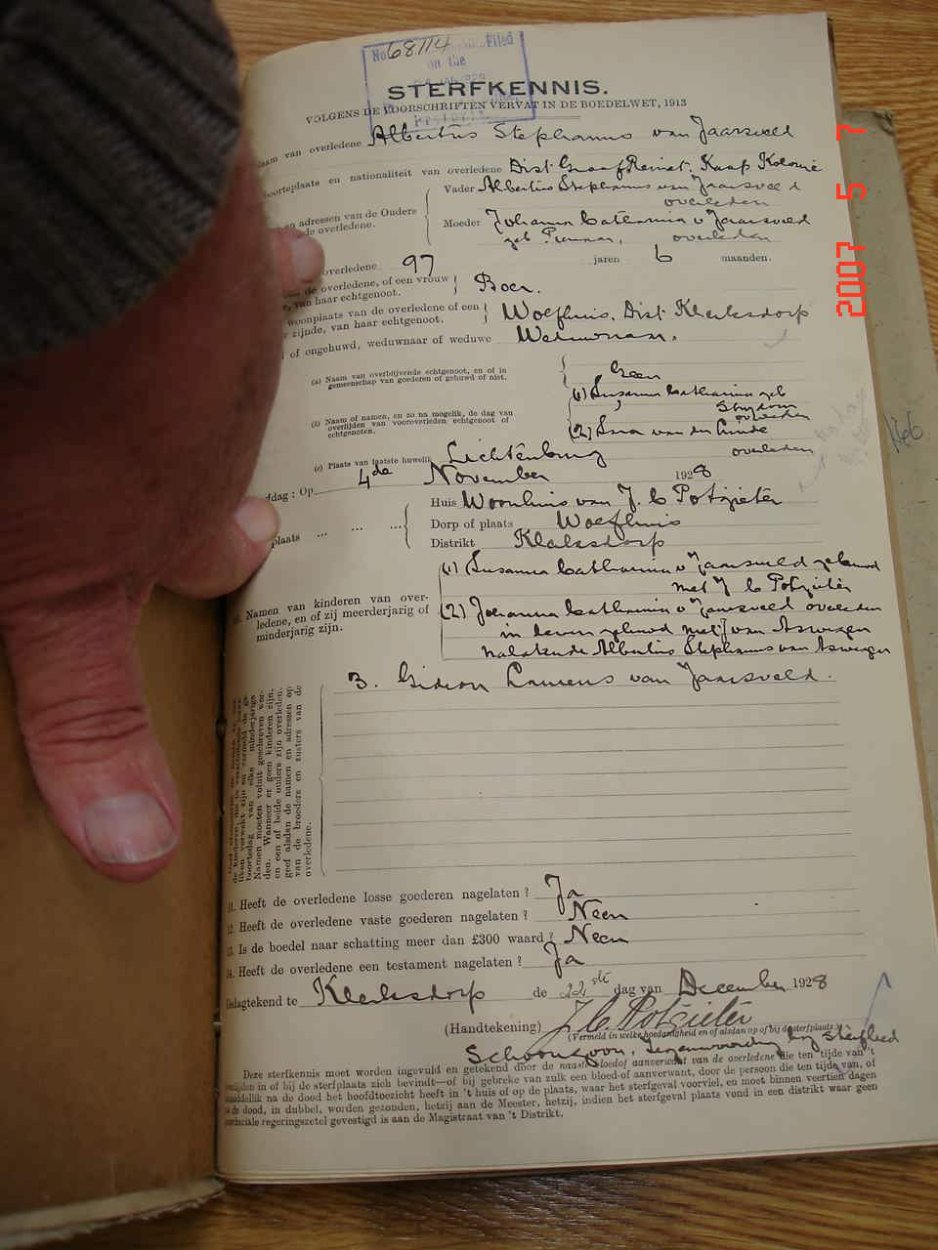 No 68114 Filed
on the
STERFKENNIS.
VOLGENS DE VOORSCHRIFTEN VERVAT IN DE BOEDELWET, 1913
van overledene Albertus Stephanus van Jaarsveld
en nationaliteit van overledene Dist. Graaff Reinet. Kaap Kolonie
Vader Albertus Stephanus van Jaarsveld
overleden
en adressen van de Ouders
overledene.
Moeder Johanna Catharina v Jaarsveld
geb Pienaar, overleden
overledene 97 jaren 6 maanden.
de overledene, of een vrouw
van haar echtgenoot.
Boer.
woonplaats van de overledene of een
zijnde, van haar echtgenoot.
Wolfhuis, Dist. Klerksdorp
of ongehuwd, weduwnaar of weduwe Weduwnaar.
(a) Naam van overblijvende echtgenoot, en of in
gemeenschap van goederen of gehuwd of niet.
Geen
(b) Naam of namen, en zo na mogelijk, de dag van
overlijden van vooroverleden echtgenoot of
echtgenoten.
(1) Susanna Catharina geb
Strydom
overleden
(2)
overleden
(c) Plaats van laatste huwelik Lichtenburg
Op 4de November 1928
Huis Woonhuis van J. C Potgieter
Dorp of plaats Wolfhuis
plaats ... ...
Distrikt Klerksdorp
Namen van kinderen van over-
ledene, en of zij meerderjarig of
minderjarig zijn.
(1) Susanna Catharina v Jaarsveld gehuwd
met J C Potgieter
(2) Johanna Catharina v Jaarsveld overleden
in leven gehuwd met J van Aswegen
nalatende Albertus Stephanus van Aswegen
3. Gideon Lourens van Jaarsveld.
Namen moeten voluit geschreven wor-
den. Wanneer er geen kinderen zijn,
en een of beide ouders zijn overleden,
geef alsdan de namen en adressen op
van de broeders en zusters van de
overledene.
11. Heeft de overledene losse goederen nagelaten? Ja
12. Heeft de overledene vaste goederen nagelaten? Neen
13. Is de boedel naar schatting meer dan £300 waard? Neen
14. Heeft de overledene een testament nagelaten? Ja
Gedagtekend te Klerksdorp de 22ste dag van December 1928
(Handtekening) J. C. Potgieter
(Vermeld in welke hoedanigheid en of alsdan op of bij de sterfplaats.)
Schoonzoon, Tegenwoordig by Sterfbed
Deze sterfkennis moet worden ingevuld en getekend door de naaste bloed of aanverwant van de overledene die ten tijde van 't
in of bij de sterfplaats zich bevindt—of bij gebreke van zulk een bloed- of aanverwant, door de persoon die ten tijde van, of
na de dood het hoofdtoezicht heeft in 't huis of op de plaats, waar het sterfgeval voorviel, en moet binnen veertien dagen
de dood, in dubbel, worden gezonden, hetzij aan de Meester, hetzij, indien het sterfgeval plaats vond in een distrikt waar geen
provinciale regeringszetel gevestigd is aan de Magistraat van 't Distrikt.
2007 5 7